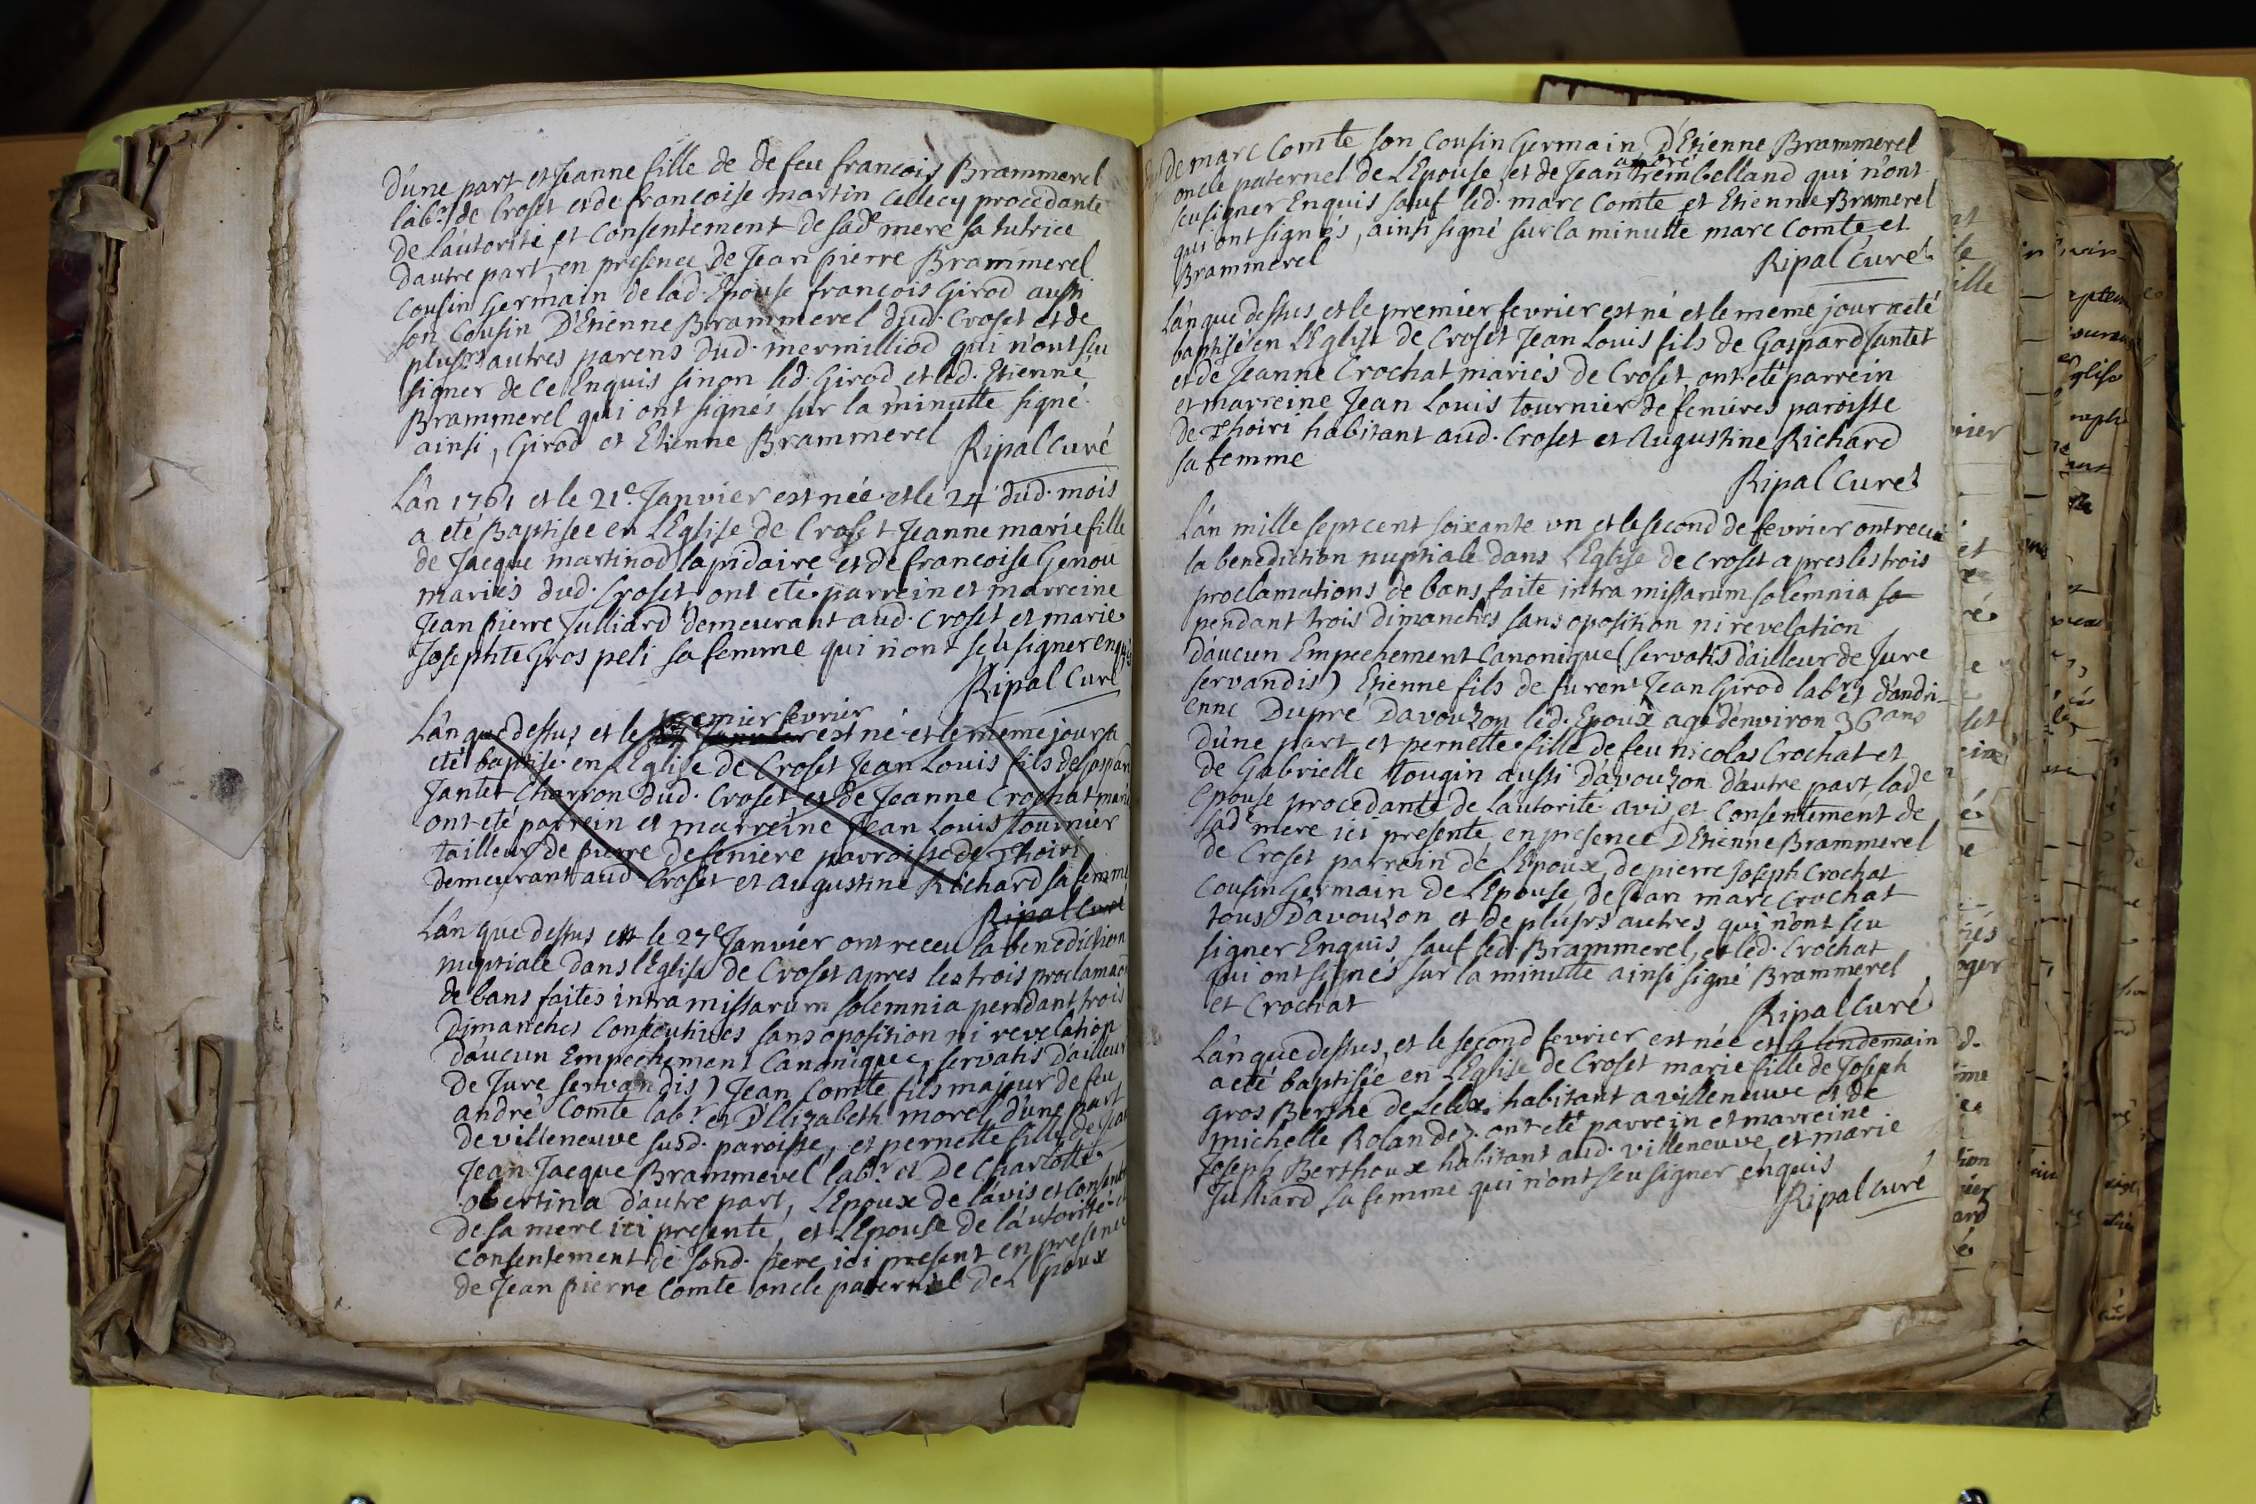 D'une part et Jeanne fille de de feu francois Brammerel
lab.r de Croset et de francoise martin cellecy procedante
de l'autorité et Consentement de sad.e mere sa tutrice
dautre part, en presence de Jean pierre Brammerel
Cousin Germain de lad. Epouse francois Girod aussi
son Cousin D'Etienne Brammerel dud. Croset et de
plusrs autres parens dud. mermilliod qui n'ont sçu
signer de ce Enquis sinon led. Girod et led. Etienne
Brammerel qui ont signés sur la minutte signé
ainsi, Girod et Etienne Brammerel
Ripal Curé
L'an 1761 et le 21e Janvier est née et le 24 dud. mois
a eté Baptisée en L'Eglise de Croset Jeanne marie fille
de Jacque martinod lapidaire et de francoise Genou
mariés dud. Croset ont eté parrein et marreine
Jean pierre Julliard demeurant aud. Croset et marie
Josephte Gros peli sa femme qui n'ont sçu signer enquis
Ripal Curé
premier fevrier
L'an que dessus et le est né et le meme jour a
eté baptisé en L'Eglise de Croset Jean Louis fils de Gaspard
Jantet Charron dud. Croset et de Jeanne Crochat mariés
ont eté parrein et marreine Jean Louis tournier
tailleur de pierre de feniere parroisse de Thoiri
demeurant aud Croset et augustine Richard sa femme
Ripal Curé
L'an que dessus et le 27e Janvier ont receu la benediction
nuptiale dans l'Eglise de Croset apres les trois proclamaons
de bans faites intra missarum solemnia pendant trois
Dimanches Consecutives sans oposition ni revelation
d'aucun Empechement Canonique, servatis d'ailleur
de Jure servandis) Jean Comte fils majeur de feu
andré Comte lab.r et D'Elizabeth morel d'une part
de villeneuve susd. paroisse, et pernette fille de Jean
Jean Jacque Brammerel lab.r et De Charlotte
obertina d'autre part, L'Epoux de l'avis et Consentemt
de sa mere ici presente, et L'Epouse de l'autorité et
Consentement de sond. pere ici present en presence
de Jean pierre Comte oncle paternel de L'Epoux
de marc Comte son Cousin Germain, D'Etienne Brammerel
andré
oncle paternel de L'Epouse, et de Jean trembelland qui n'ont
sçu signer Enquis sauf led. marc Comte et Etienne Bramerel
qui ont signés, ainsi signé sur la minutte marc Comte et
Brammerel
Ripal Curé
L'an que dessus et le premier fevrier est né et le meme jour a eté
baptisé en L'Eglise de Croset Jean Louis fils de Gaspard Jantet
et de Jeanne Crochat mariés de Croset, ont eté parrein
et marreine Jean Louis tournier de fenieres paroisse
de Thoiri habitant aud. Croset et Augustine Richard
sa femme
Ripal Curé
L'an mille sept cent soixante un et le second de fevrier ont receu
la benediction nuptiale dans L'Eglise de Croset apres les trois
proclamations de bans faite intra missarum solemnia se
pendant trois dimanches sans oposition ni revelation
d'aucun Empechement Canonique (servatis d'ailleur de Jure
servandis) Etienne fils de furent Jean Girod lab.r et d'andri-
enne Dupré Davouzon led. Epoux agé d'environ 36 ans
d'une part et pernette fille de feu nicolas Crochat et
de Gabrielle tougin aussi D'avouzon d'autre part lade
epouse procedante de l'autorité avis, et Consentement de
sad mere ici presente, en presence D'Etienne Brammerel
de Croset parrein de L'Epoux, de pierre Joseph Crochat
Cousin Germain de L'Epouse, de Jean marc Crochat
tous D'avouzon et de plusrs autres qui n'ont sçu
signer Enquis, sauf led. Brammerel, et led. Crochat
qui ont signés sur la minutte ainsi signé Brammerel
et Crochat
Ripal Curé
L'an que dessus, et le second fevrier est née et le lendemain
a eté baptisée en L'Eglise de Croset marie fille de Joseph
gros Berthe de Lelex, habitant a villeneuve et de
michelle Rolandez. ont eté parrein et marreine
Joseph Berthoux habitant aud. villeneuve et marie
Julliard sa femme qui n'ont sçu signer enquis
Ripal curé